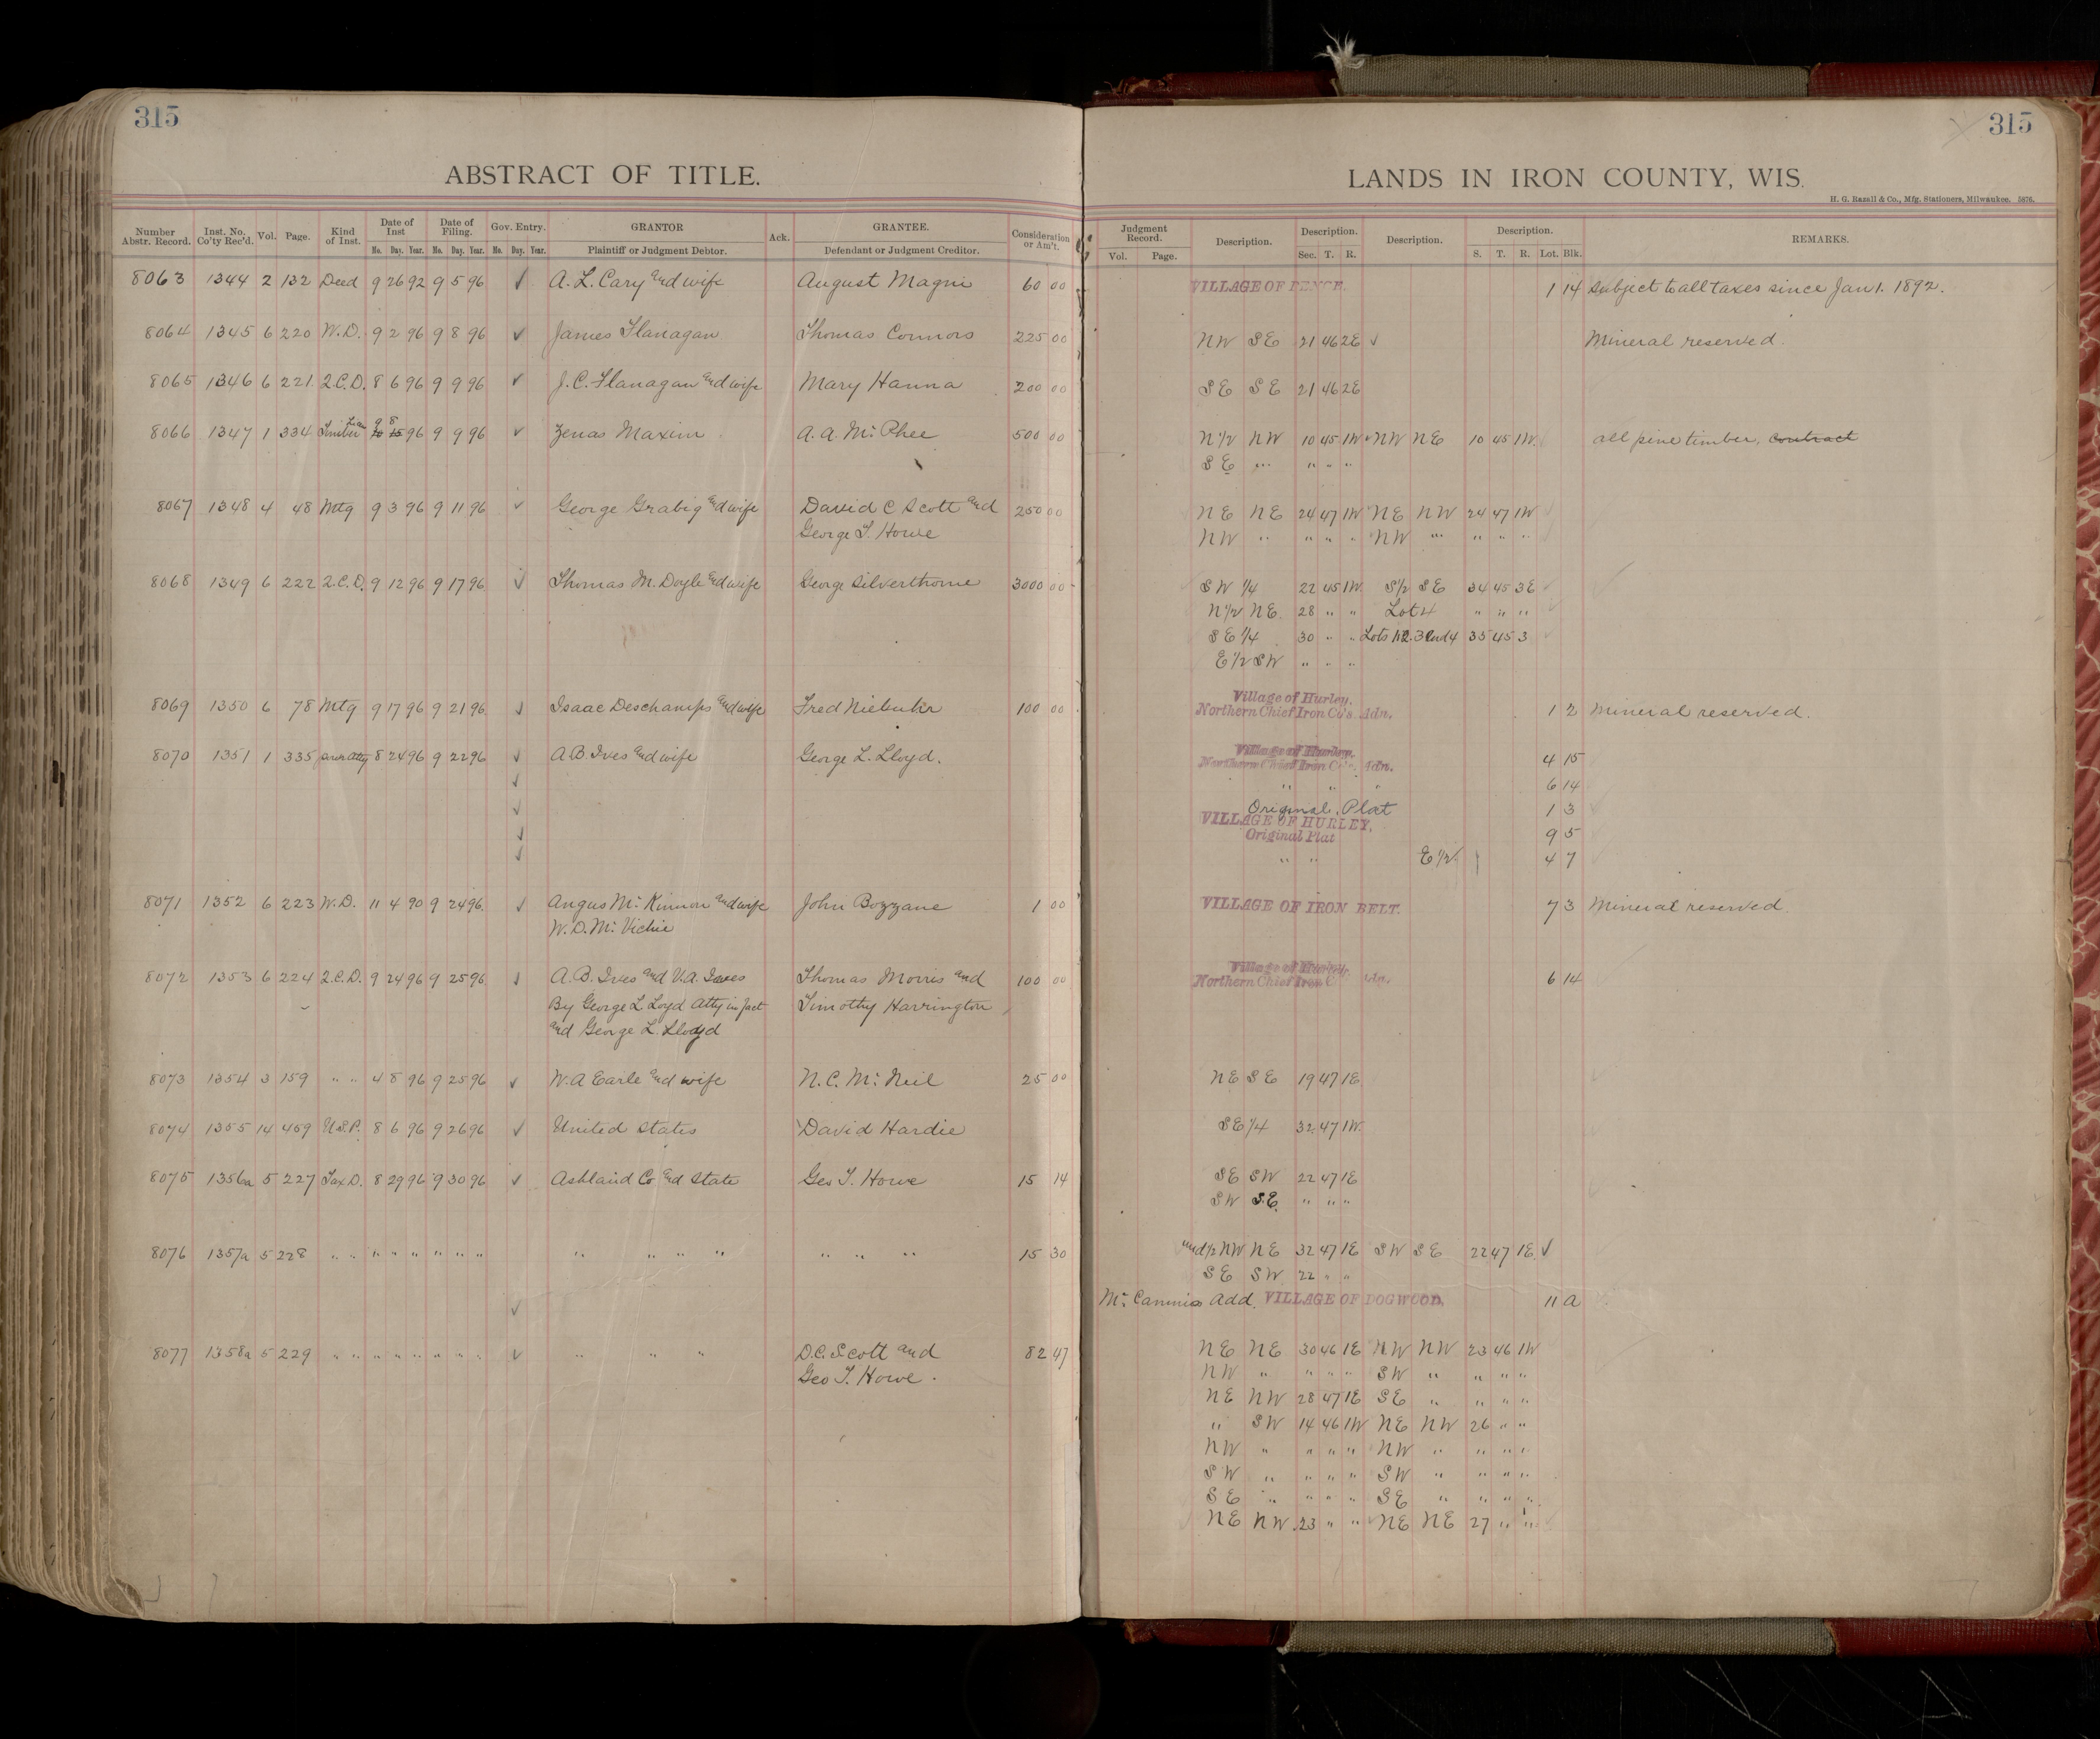 315
315
ABSTRACT OF TITLE.
LANDS IN IRON COUNTY, WIS.
H. G. Razall & Co., Mfg. Stationers, Milwaukee. 5876.
Number Abstr. Record. Inst. No. Co'ty Rec'd. Vol. Page. Kind of Inst. Date of Inst Date of Filing. Gov. Entry. GRANTOR Ack. GRANTEE. Consideration or Am't. Judgment Record. Description. Description. Description. Description. REMARKS.
Mo. Day. Year. Mo. Day. Year. Mo. Day. Year. Plaintiff or Judgment Debtor. Defendant or Judgment Creditor. Vol. Page. Sec. T. R. S. T. R. Lot. Blk.
8063 1344 2 132 Deed 9 26 92 9 5 96 ✓ A. L. Cary and wife August Magni 60 00 VILLAGE OF PENCE. 1 14 Subject to all taxes since Jan 1. 1892.
8064 1345 6 220 W.D. 9 2 96 9 8 96 ✓ James Flanagan Thomas Connors 225 00 NW SE 21 46 2E ✓ Mineral reserved.
8065 1346 6 221 Q.C.D. 8 6 96 9 9 96 ✓ J. C. Flanagan and wife Mary Hanna 200 00 SE SE 21 46 2E
8066 1347 1 334 Timber 9 8 96 9 9 96 ✓ Zenas Maxim A. A. McPhee 500 00 N1/2 NW 10 45 1W NW NE 10 45 1W. all pine timber, contract
SE " " " "
8067 1348 4 48 Mtg 9 3 96 9 11 96 ✓ George Grabig and wife David C Scott and 250 00 NE NE 24 47 1W NE NW 24 47 1W
George T. Howe NW " " " " NW " " " "
8068 1349 6 222 Q.C.D. 9 12 96 9 17 96 ✓ Thomas M. Doyle and wife George Silverthorne 3000 00 SW 1/4 22 45 1W S1/2 SE 34 45 3E
N1/2 NE 28 " " Lot 4 " " "
SE 1/4 30 " " Lots 1 2. 3 and 4 35 45 3
E 1/2 SW " " "
8069 1350 6 78 Mtg 9 17 96 9 21 96 ✓ Isaac Deschamps and wife Fred Niebuhr 100 00 Village of Hurley. Northern Chief Iron Co's Adn. 1 2 Mineral reserved.
8070 1351 1 335 power atty 8 24 96 9 22 96 ✓ A B Ives and wife George L. Lloyd. Village of Hurley. Northern Chief Iron Co's. Adn. 4 15
✓ " " " 6 14
✓ Original Plat 1 3
✓ VILLAGE OF HURLEY. Original Plat 9 5
✓ " " E 1/2 4 7
8071 1352 6 223 W.D. 11 4 90 9 24 96 ✓ Angus McKinnon and wife John Bozzane 1 00 VILLAGE OF IRON BELT. 7 3 Mineral reserved
W. D. McVichie
8072 1353 6 224 Q.C.D. 9 24 96 9 25 96 ✓ A. B. Ives and V. A. Ives Thomas Morris and 100 00 Village of Hurley. Northern Chief Iron Adn. 6 14
By George L Loyd Atty in fact Timothy Harrington
and George L. Lloyd
8073 1354 3 159 " " 4 8 96 9 25 96 ✓ W. A Earle and wife N. C. McNeil 25 00 NE SE 19 47 1E
8074 1355 14 459 U.S.P. 8 6 96 9 26 96 ✓ United States David Hardie SE 1/4 32 47 1W.
8075 1356a 5 227 Tax D. 8 29 96 9 30 96 ✓ Ashland Co and State Geo T. Howe 15 14 SE SW 22 47 1E
SW SE " " "
8076 1357a 5 228 " " " " " " " " " " " " " " " 15 30 und 1/2 NW NE 32 47 1E SW SE 22 47 1E ✓
SE SW 22 " "
✓ Add. VILLAGE OF DOGWOOD. 11 A
8077 1358a 5 229 " " " " " " " " ✓ " " " D.C. Scott and 82 47 NE NE 30 46 1E NW NW 23 46 1W
Geo T. Howe. NW " " " " SW " " " "
NE NW 28 47 1E SE " " " "
" SW 14 46 1W NE NW 26 " "
NW " " " " NW " " " "
SW " " " " SW " " " "
SE " " " " SE " " " "
NE NW 23 " " NE NE 27 " "